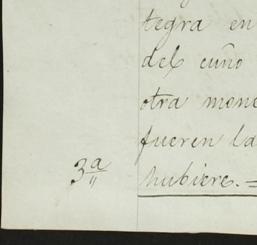 tegra en
del cuño
otra mone
fueren la
3ª hubiere.=